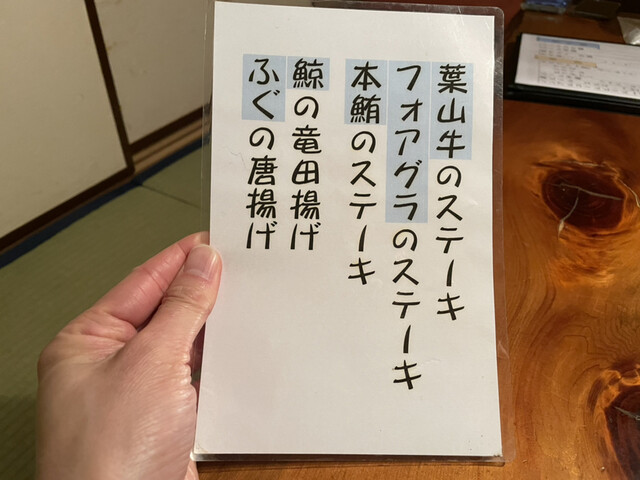 葉山牛のステーキ
フォアグラのステーキ
本鮪のステーキ
鯨の竜田揚げ
ふぐの唐揚げ